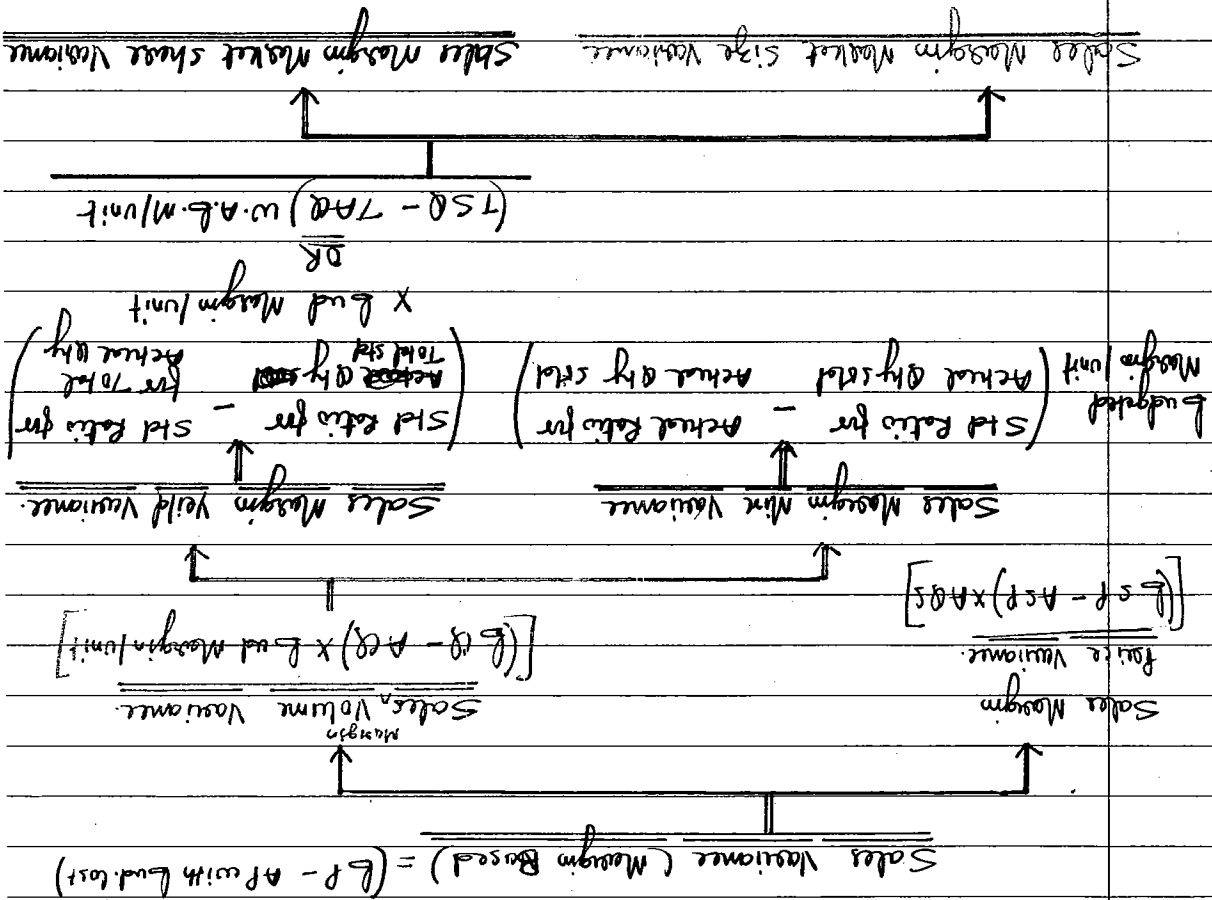 Sales Variance (Margin Based) = (BP - AP with bud. cost)
Sales Margin
Price Variance.
[(BSP - ASP) X AQS]
Sales Margin Volume Variance.
[(BQ - AQ) X Bud Margin/unit]
Sales Margin Mix Variance
Sales Margin Yeild Variance.
Budgeted
Margin/unit
(Std Ratio for
Actual Qty sold
-
Actual Ratio for
Actual Qty sold)
(Std Ratio for
Total Std Qty
-
Std Ratio for
for Total
Actual Qty)
X Bud Margin/unit
OR
(TSQ - TAQ) W.A.B.M/unit
Sales Margin Market Size Variance
Sales Margin Market Share Variance